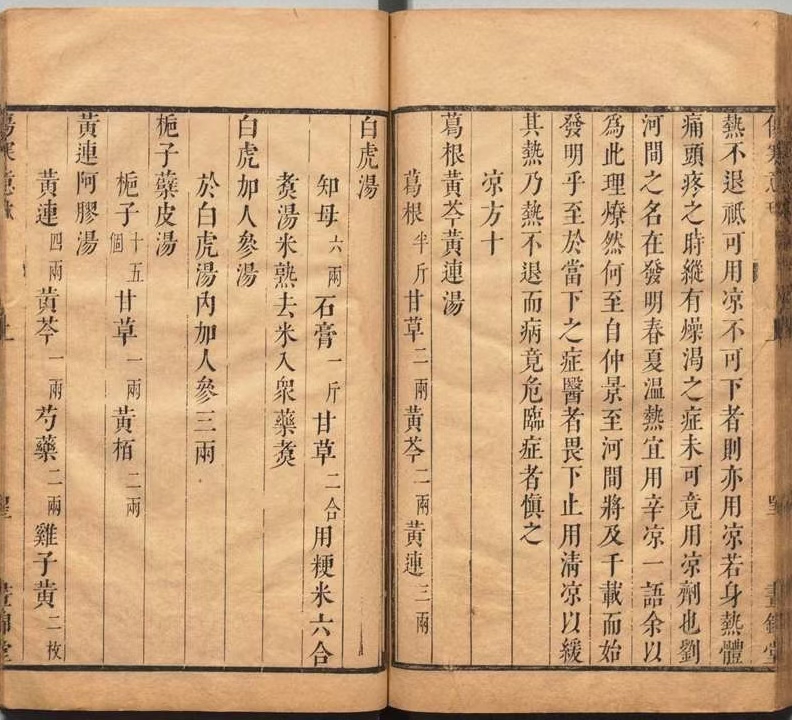 熱不退祇可用凉不可下者則亦用凉若身熱體
痛頭疼之時縱有燥渴之症未可竟用凉劑也劉
河間之名在發明春夏温熱宜用辛凉一語余以
爲此理燎然何至自仲景至河間將及千載而始
發明乎至於當下之症醫者畏下止用清凉以緩
其熱乃熱不退而病竟危臨症者愼之
凉方十
葛根黃芩黃連湯
葛根半斤甘草二兩黃芩二兩黃連三兩
白虎湯
知母六兩石膏一斤甘草二合用粳米六合
煑湯米熟去米入衆藥煑
白虎加人參湯
於白虎湯內加人參三兩
梔子蘗皮湯
梔子十五個甘草一兩黃栢二兩
黃連阿膠湯
黃連四兩黃芩一兩芍藥二兩雞子黃二枚